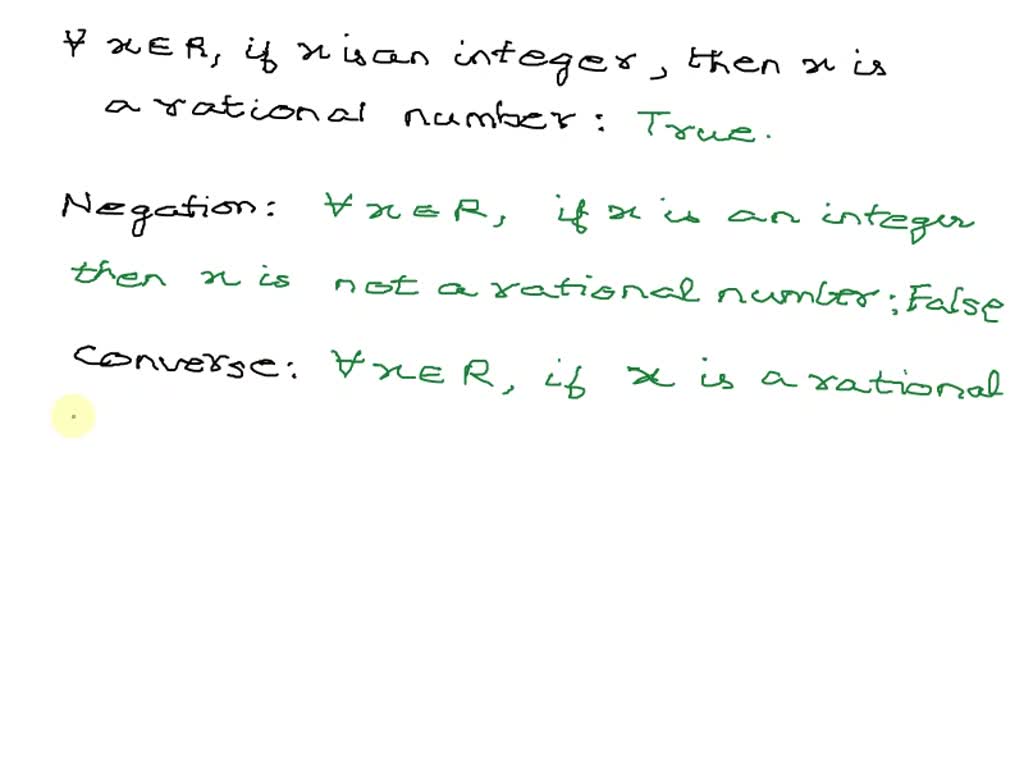 ∀ x ∈ R, if x is an integer, then x is
a rational number: True.
Negation: ∀ x ∈ R, if x is an integer
then x is not a rational number: False
Converse: ∀ x ∈ R, if x is a rational